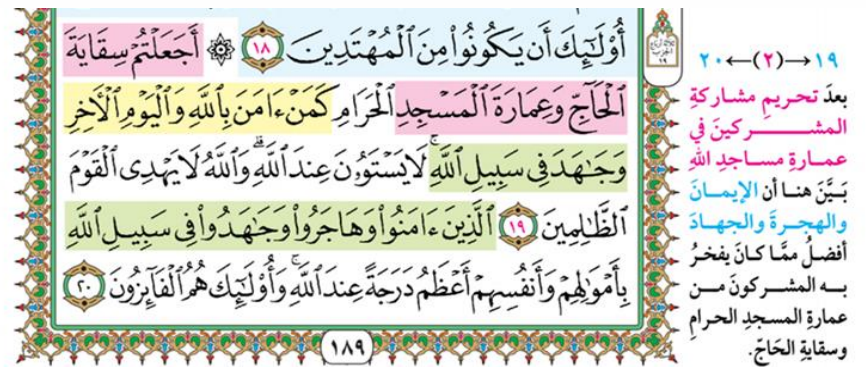 أُوْلَـٰٓئِكَ أَن يَكُونُواْ مِنَ ٱلۡمُهۡتَدِينَ ١٨ ۞ أَجَعَلۡتُمۡ سِقَايَةَ
ٱلۡحَآجِّ وَعِمَارَةَ ٱلۡمَسۡجِدِ ٱلۡحَرَامِ كَمَنۡ ءَامَنَ بِٱللَّهِ وَٱلۡيَوۡمِ ٱلۡأٓخِرِ
وَجَٰهَدَ فِي سَبِيلِ ٱللَّهِۚ لَا يَسۡتَوُۥنَ عِندَ ٱللَّهِۗ وَٱللَّهُ لَا يَهۡدِي ٱلۡقَوۡمَ
ٱلظَّٰلِمِينَ ١٩ ٱلَّذِينَ ءَامَنُواْ وَهَاجَرُواْ وَجَٰهَدُواْ فِي سَبِيلِ ٱللَّهِ
بِأَمۡوَٰلِهِمۡ وَأَنفُسِهِمۡ أَعۡظَمُ دَرَجَةً عِندَ ٱللَّهِۚ وَأُوْلَـٰٓئِكَ هُمُ ٱلۡفَآئِزُونَ ٢٠
١٨٩
١٩→(٢)←٢٠
بعدَ تحريمِ مشاركةِ
المشركينَ في
عمارةِ مساجدِ اللهِ
بَيَّنَ هنا أن الإيمانَ
والهجرةَ والجهادَ
أفضلُ ممَّا كانَ يفخرُ
به المشركونَ من
عمارةِ المسجدِ الحرامِ
وسقايةِ الحَاجِّ.